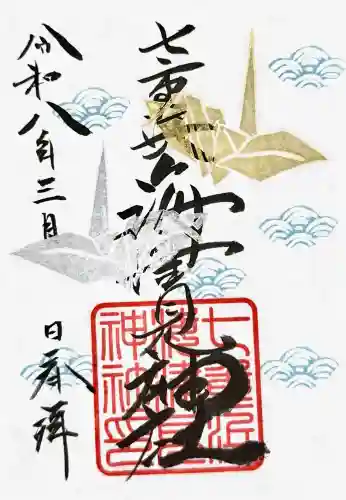 七重浜海津見神社
令和八年三月 日 奉拝
七重浜
海津見
神社印